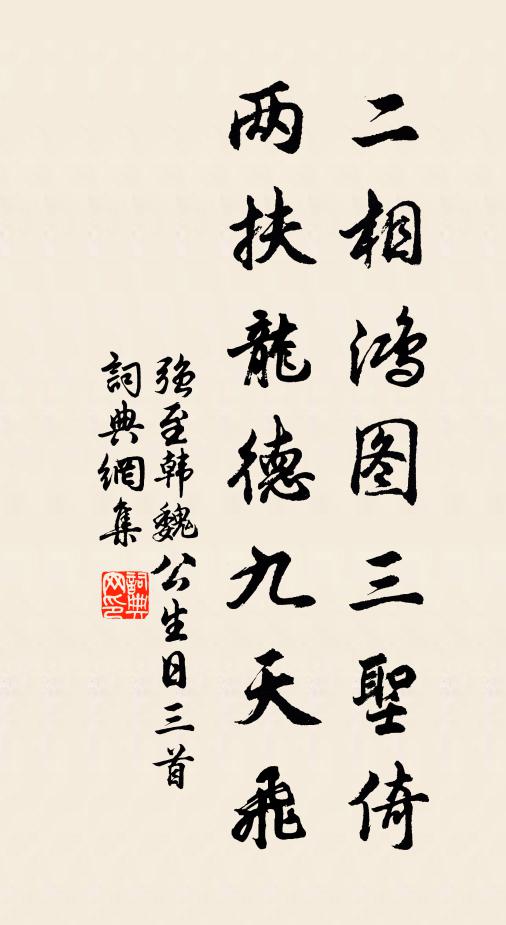 二相鸿图三聖倚
两扶龍德九天飛
強至韩魏公生日三首
詞典網集
詞典网印